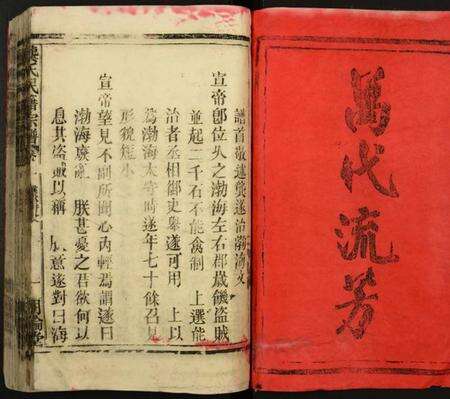 萬代流芳
譜首敬述龔遂治渤海文
宣帝即位久之渤海左右郡歲饑盜賊
並起二千石不能禽制 上選能
治者丞相御史舉遂可用 上以
為渤海太守時遂年七十餘召見
形貌短小
宣帝望見不副所聞心內輕焉謂遂曰
渤海廢亂 朕甚憂之君欲何以
息其盜賊以稱 朕意遂對曰海